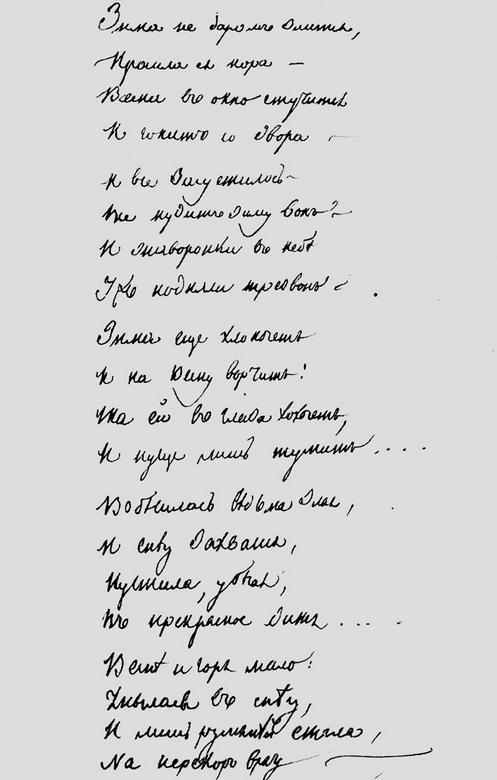 Зима не даромъ злится,
Прошла ея пора —
Весна въ окно стучится
И гонитъ со двора —
И все засуетилось —
Все нудитъ зиму вонъ —
И жаворонки въ небѣ
Ужъ подняли трезвонъ —.
Зима еще хлопочетъ
И на Весну ворчитъ!
Та ей въ глаза хохочетъ,
И пуще лишь шумитъ....
Взбѣсилась вѣдьма злая,
И снѣгу захватя,
Пустила, убѣгая,
Въ прекрасное дитя....
Веснѣ и горя мало:
Умылася въ снѣгу,
И лишь румянѣй стала,
На перекоръ врагу —